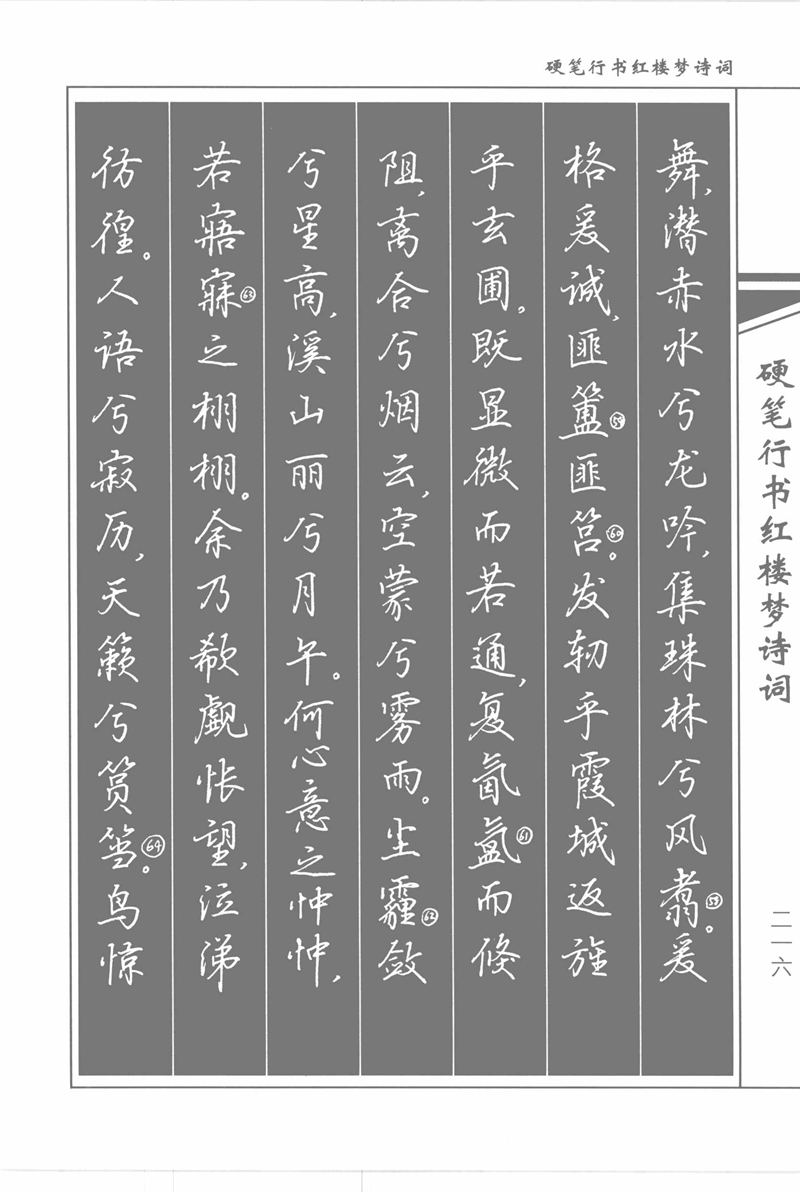 硬笔行书红楼梦诗词
舞,潜赤水兮龙吟,集珠林兮风翥58。爰
格爰诚,匪簠59匪筥60。发轫乎霞城返旌
乎玄圃。既显微而若通,复氤氲61而倏
阻,离合兮烟云,空蒙兮雾雨。尘霾62敛
兮星高,溪山丽兮月午。何心意之忡忡,
若寤寐63之栩栩。余乃欷歔怅望,泣涕
彷徨。人语兮寂历,天籁兮筼筜64。鸟惊
硬笔行书红楼梦诗词
二一六